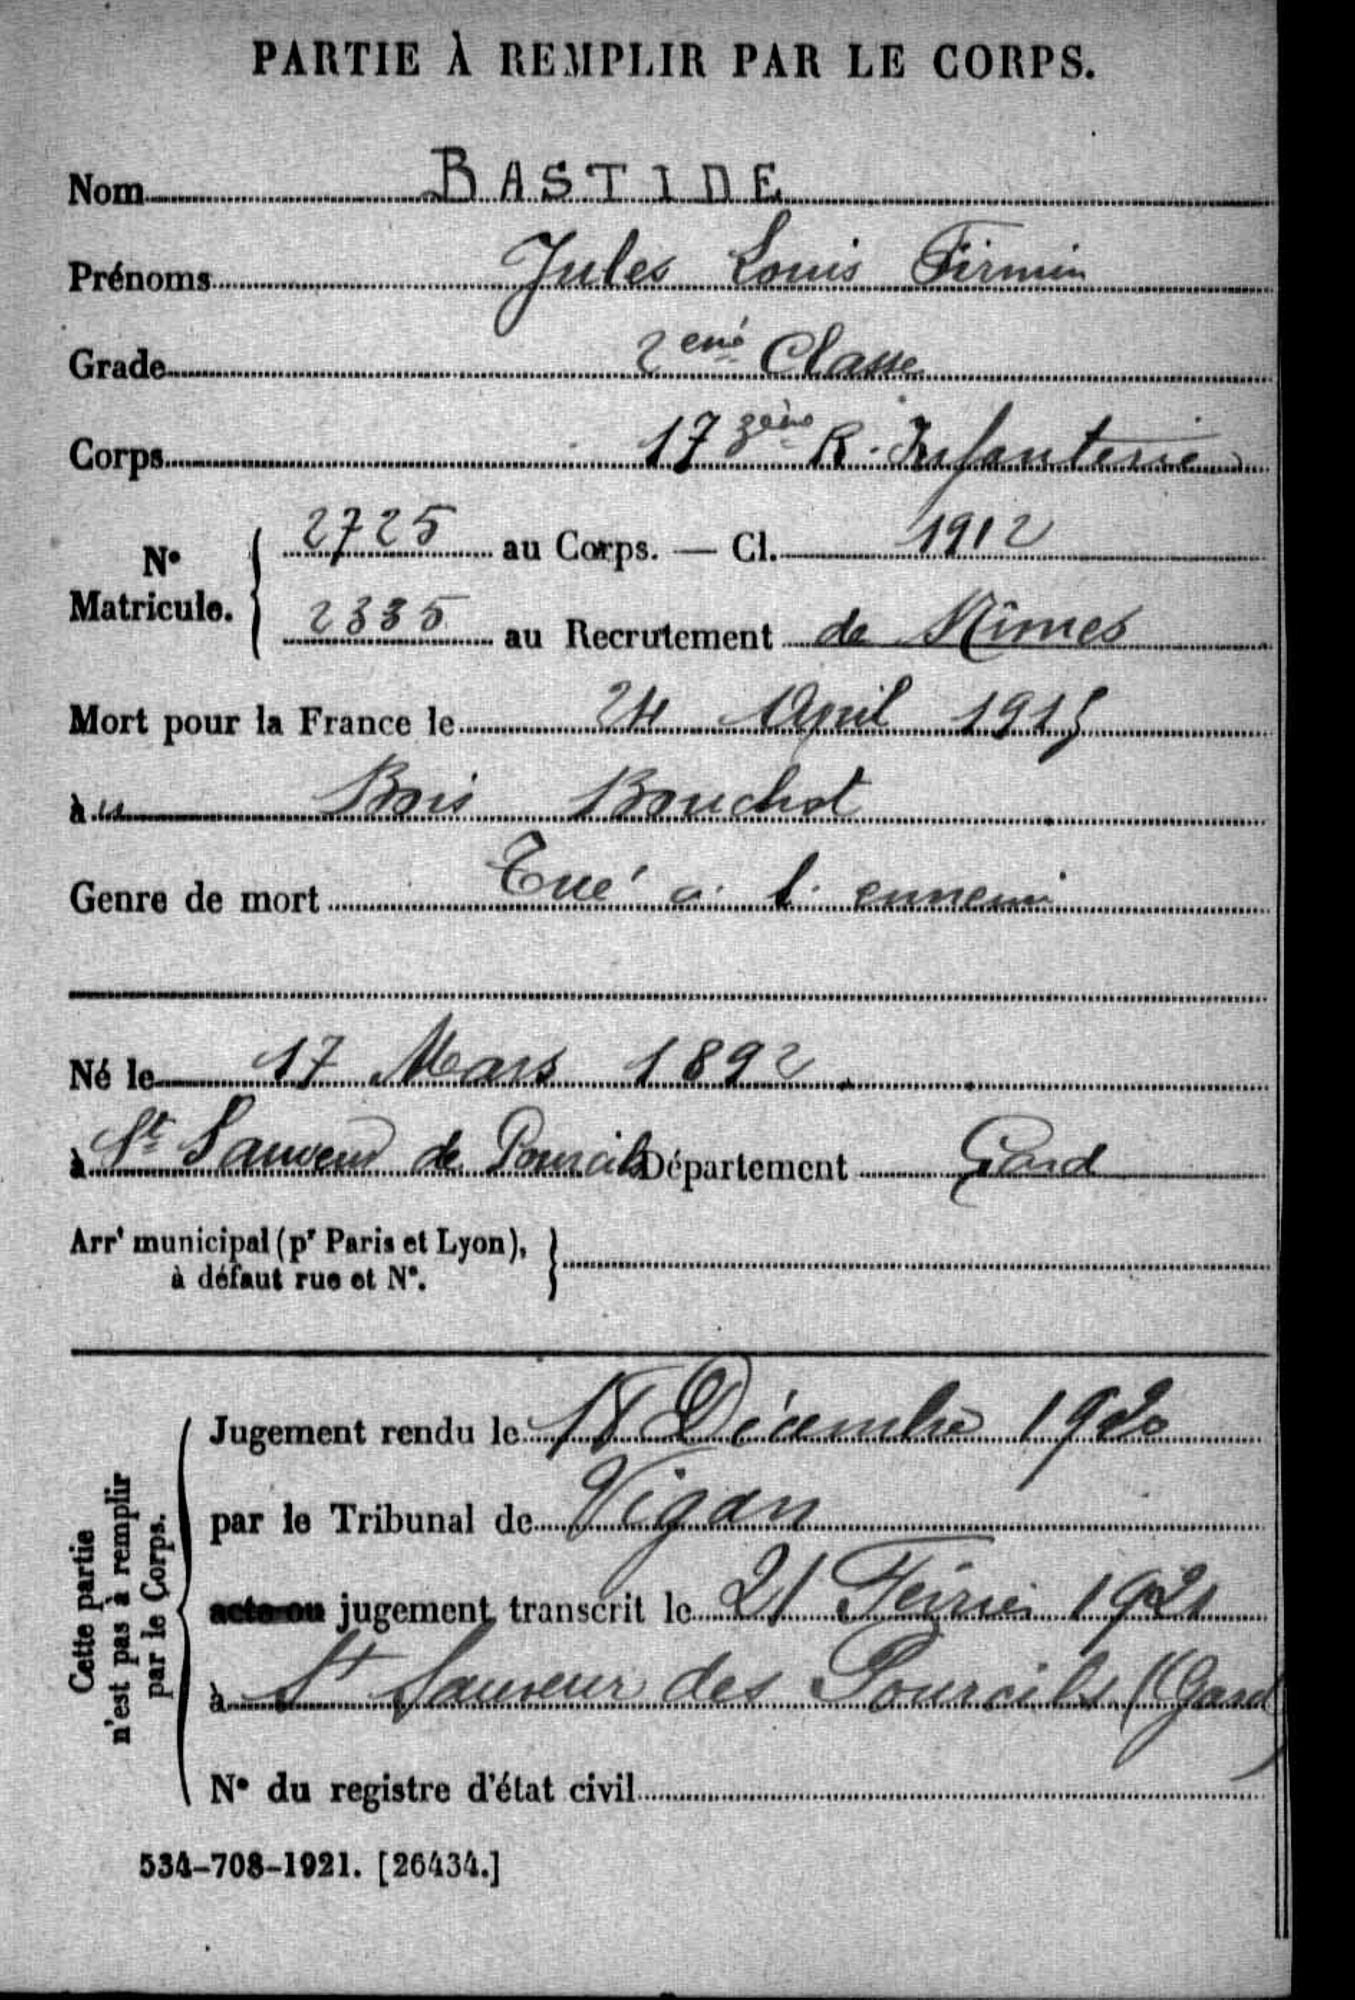 PARTIE À REMPLIR PAR LE CORPS.
Nom BASTIDE
Prénoms Jules Louis Firmin
Grade 2eme Classe
Corps 173ème R. Infanterie
N° Matricule. 2725 au Corps. — Cl. 1912
2335 au Recrutement de Nîmes
Mort pour la France le 24 April 1915
à u Bois Bouchot
Genre de mort Tué à l'ennemi
Né le 17 Mars 1892
à St Sauveur de Pourcils Département Gard
Arrt municipal (pr Paris et Lyon),
à défaut rue et N°.
Cette partie
n'est pas à remplir
par le Corps.
Jugement rendu le 18 Décembre 1920
par le Tribunal de Vigan
acte ou jugement transcrit le 21 Février 1921
à St Sauveur des Pourcils (Gard)
N° du registre d'état civil
534-708-1921. [26434.]